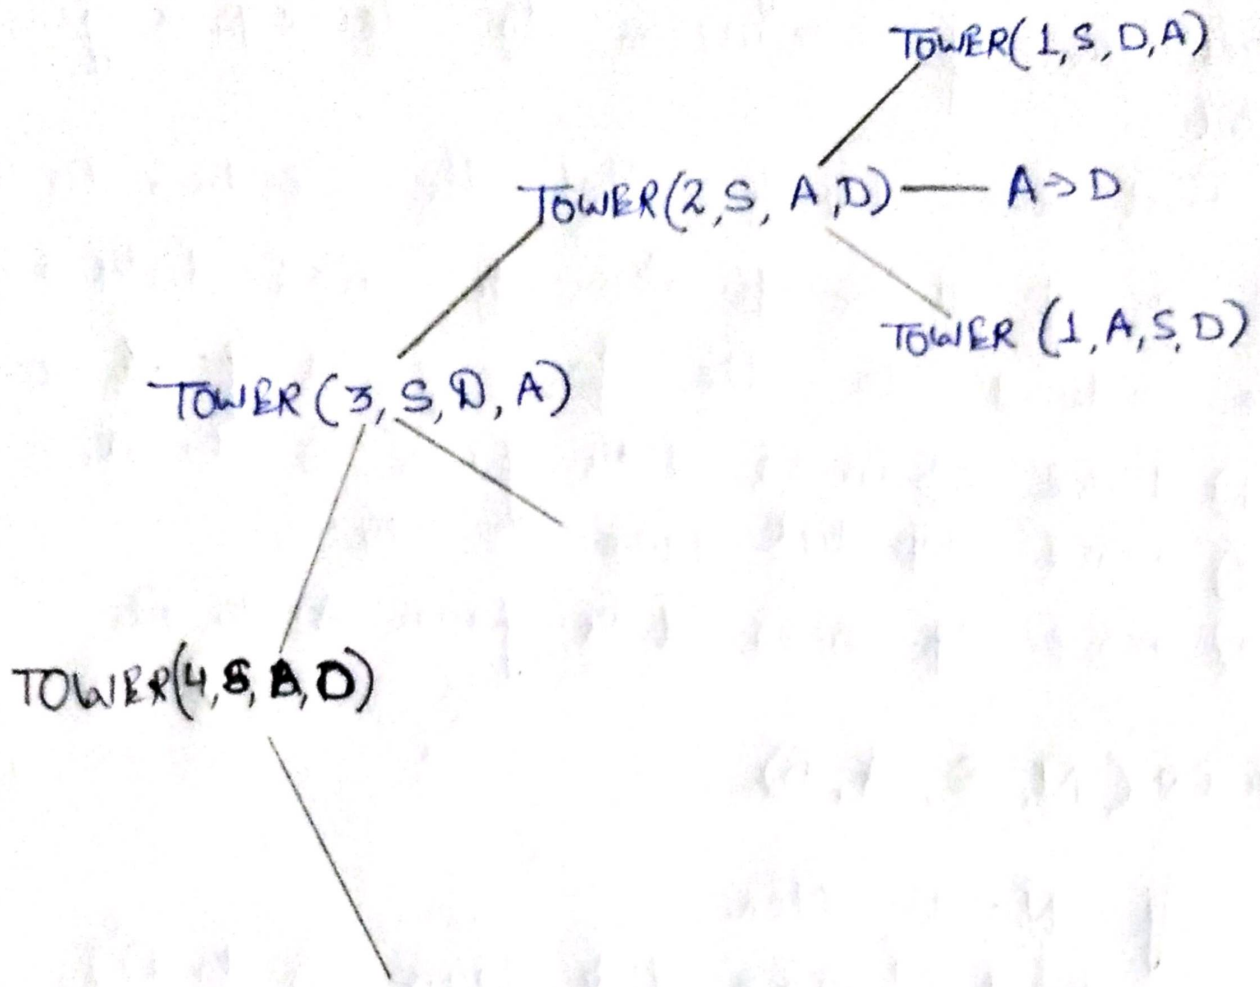 TOWER(1,S,D,A)
TOWER(2,S, A,D) — A→D
TOWER (1,A,S,D)
TOWER(3,S,D,A)
TOWER(4,S,A,D)